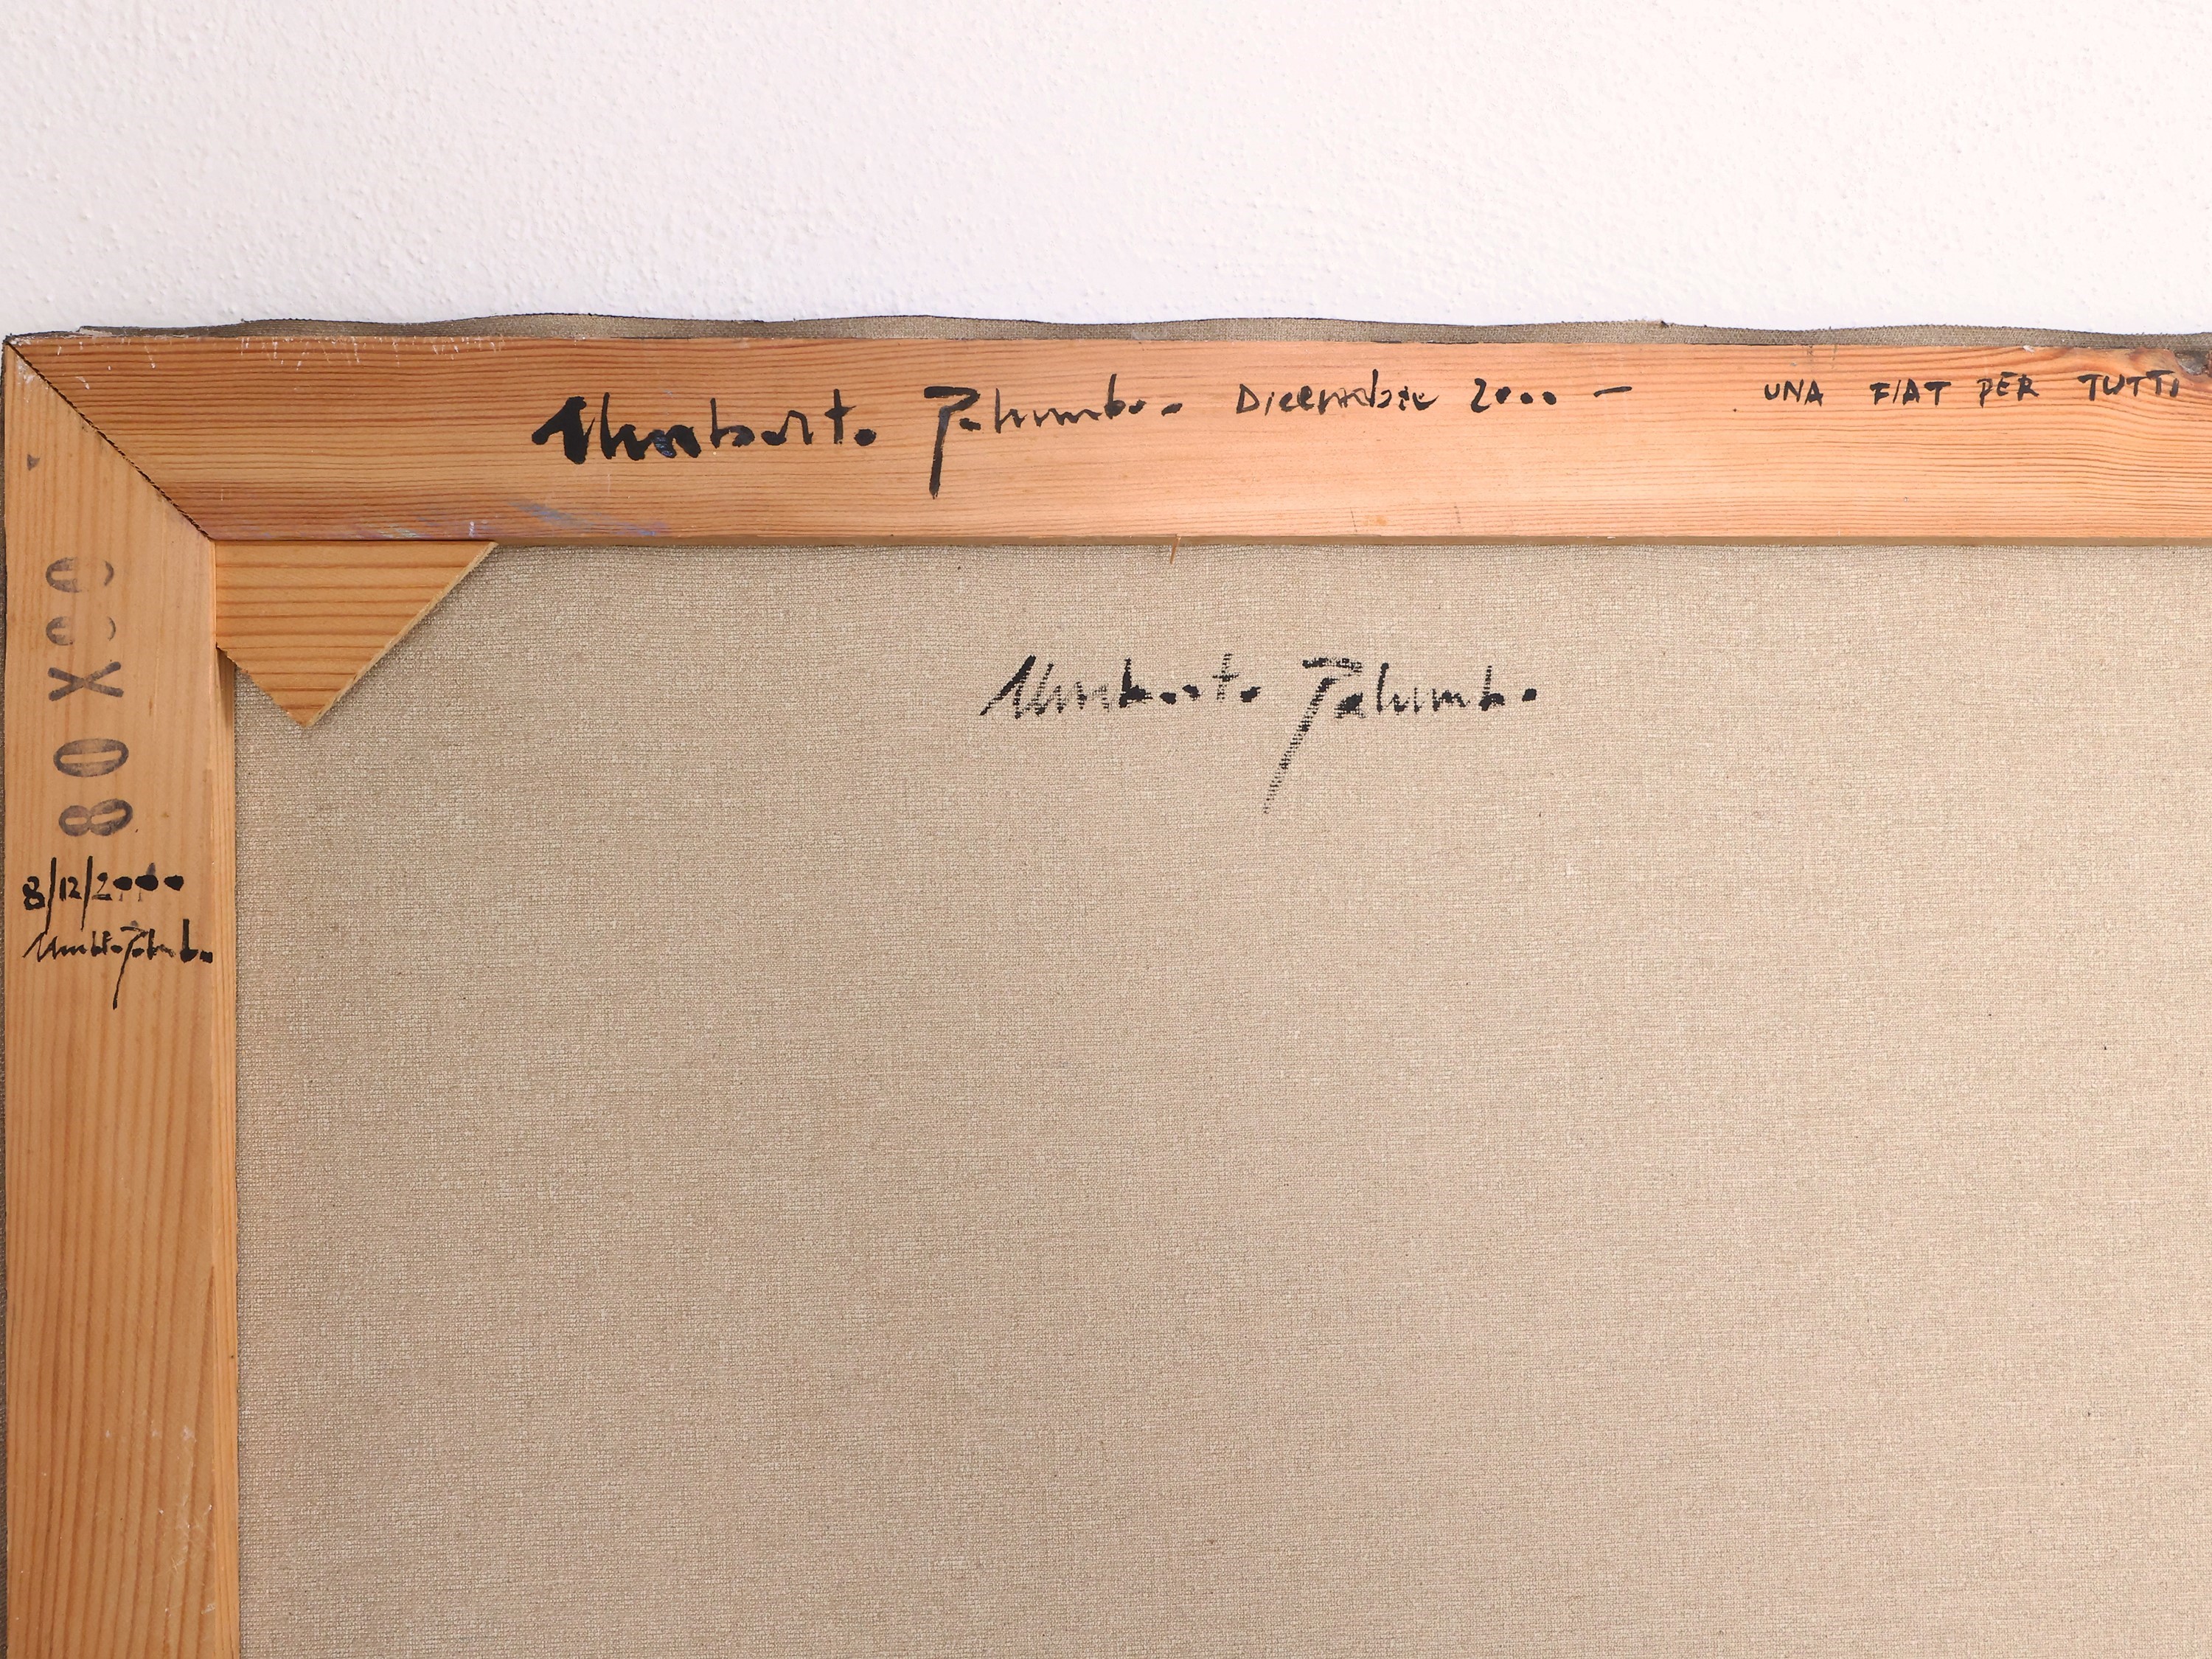 Umberto Palumbo Dicembre 2000 – UNA FIAT PER TUTTI
Umberto Palumbo
80 X
8/12/2000
Umberto Palumbo